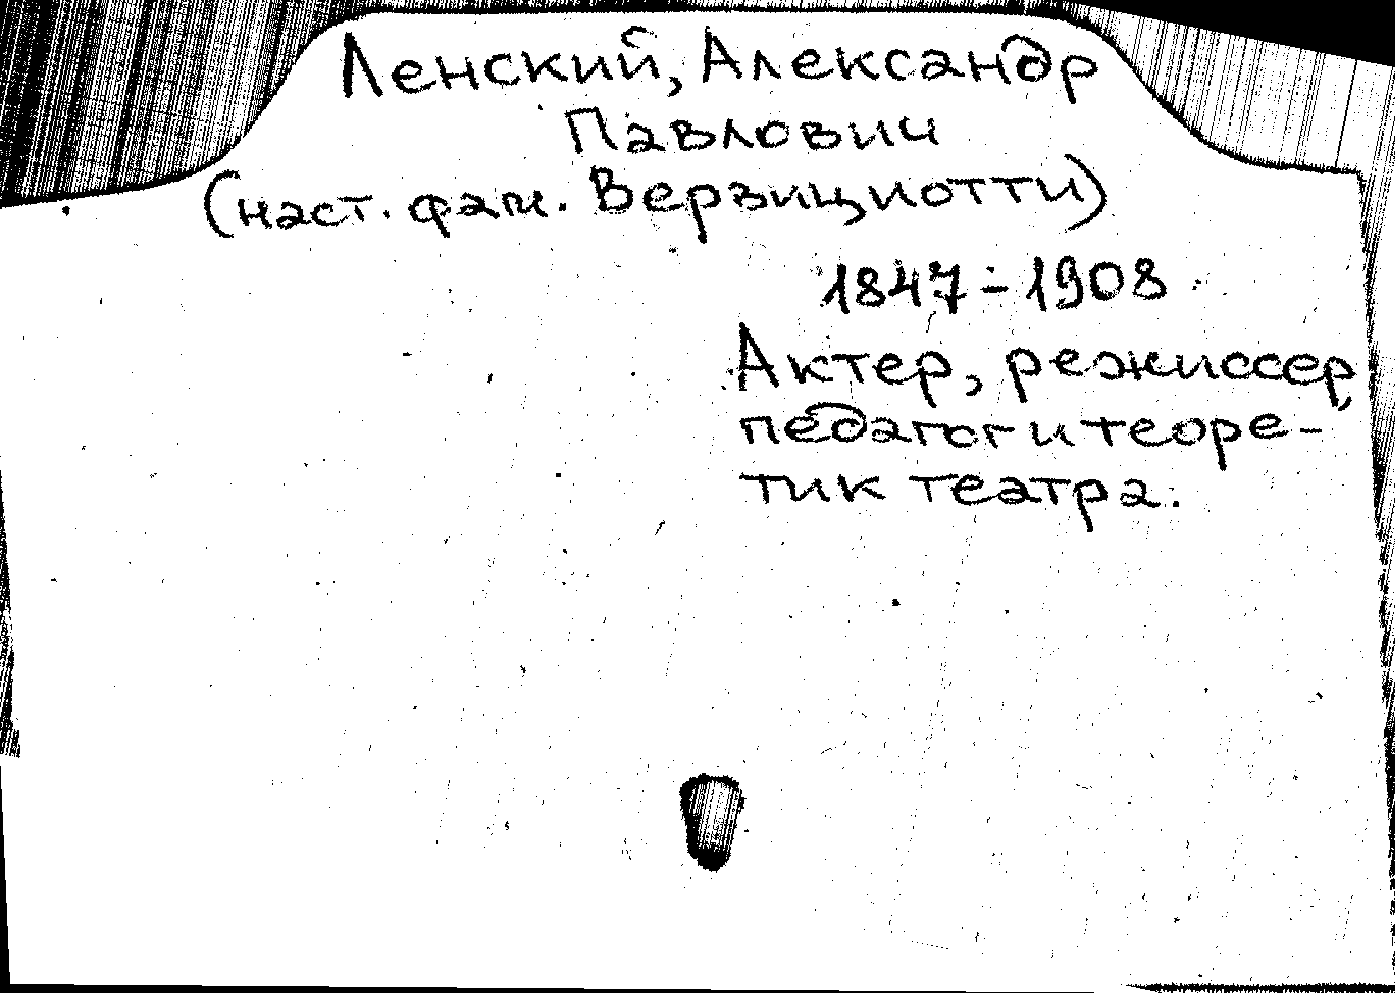 Ленский, Александр
Павлович
(наст. фам. Верзициотти)
1847-1908
Актер, режиссер,
педагог и теоре-
тик театра.